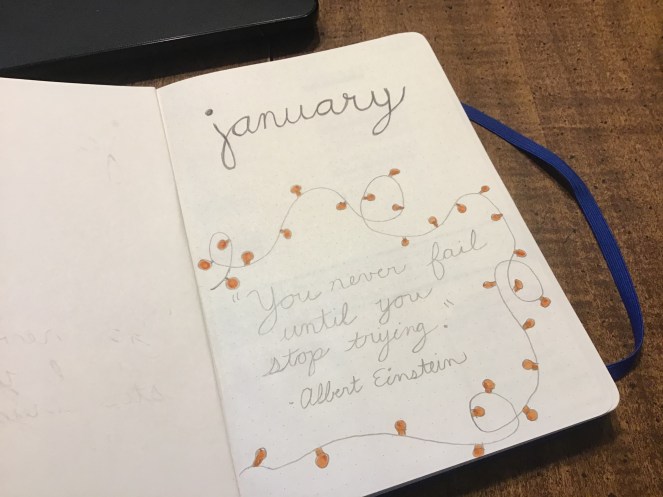 january
"You never fail
until you
stop trying."
- Albert Einstein